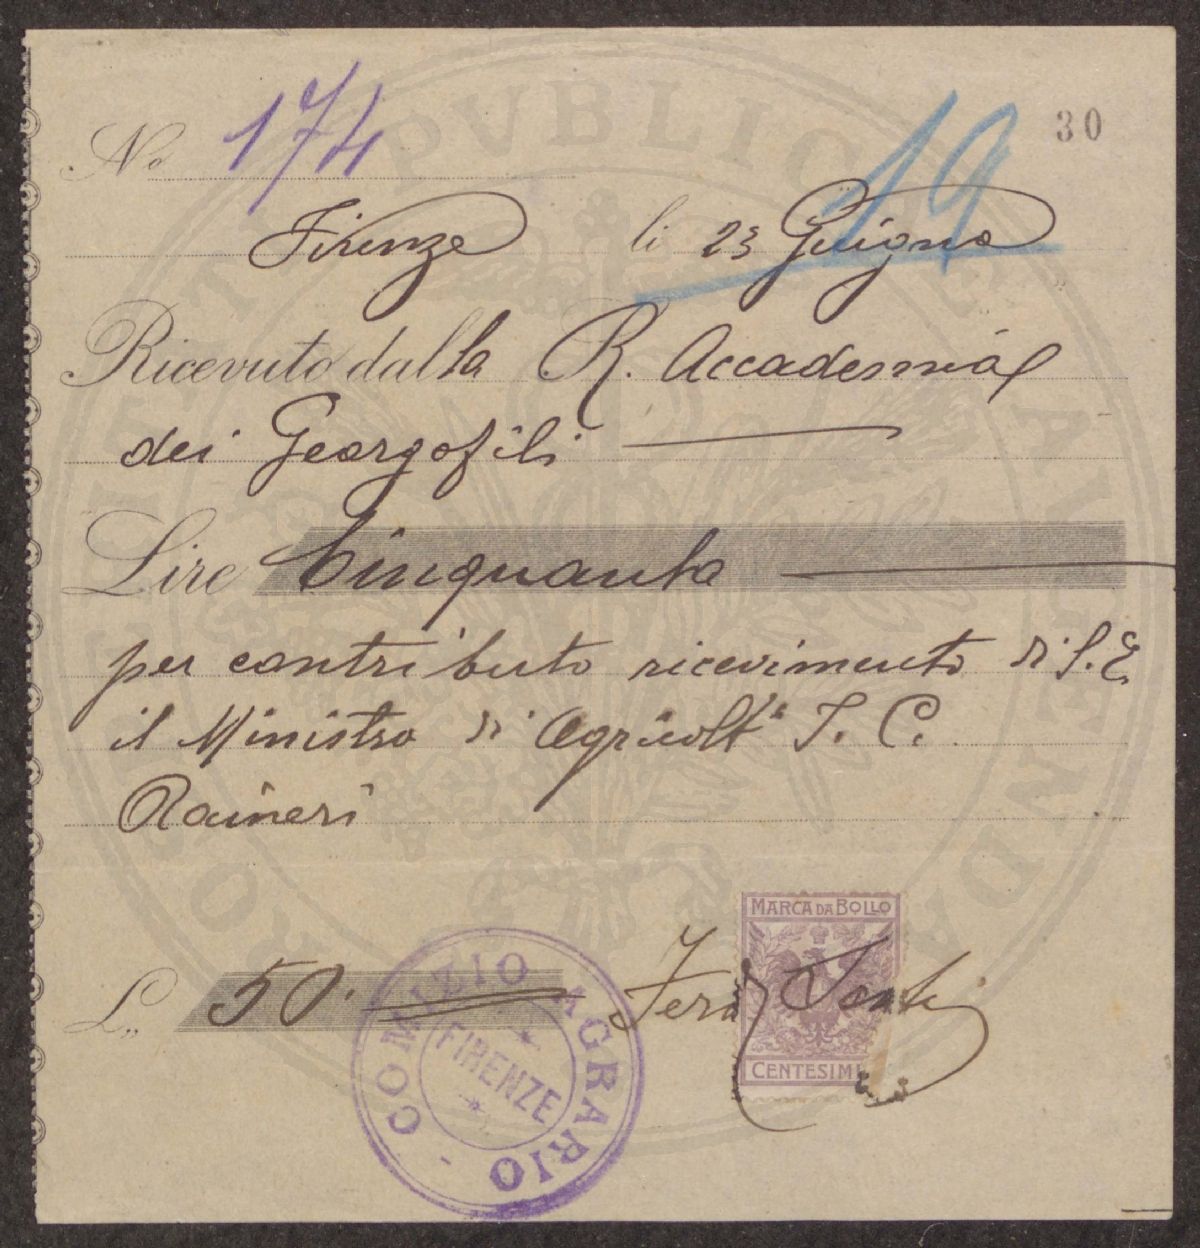 30
19
No 174
Firenze li 23 Giugno
Ricevuto dalla R. Accademia
dei Georgofili
Lire Cinquanta
per contributo ricevimento di S.E.
il Ministro di Agricolt.a I. C.
Raineri
L. 50.
MARCA DA BOLLO
CENTESIMI
COMIZIO AGRARIO
FIRENZE
PVBLICAE